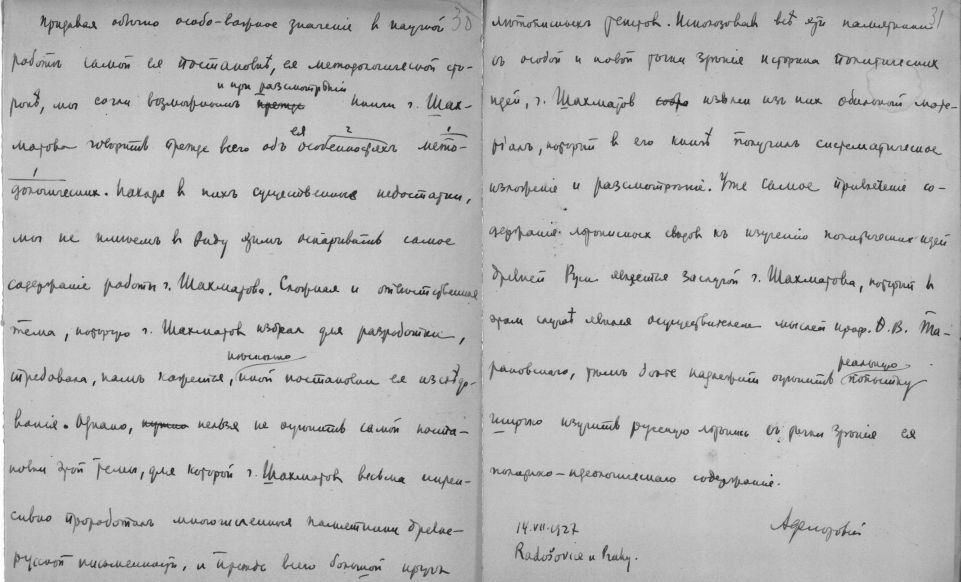 30
Придавая обычно особо-важное значеніе в научной
работѣ самой ея постановкѣ, ея методологической сто-
и при разсмотрѣніи
ронѣ, мы сочли возможнымъ прежде книги г. Шах-
матова говорить прежде всего объ ея особенностяхъ мето-
дологических. Находя в нихъ существенные недостатки,
мы не имѣемъ в виду этимъ оспаривать самое
содержаніе работы г. Шахматова. Сложная и отвѣтственная
тема, которую г. Шахматов избрал для разработки,
несколько
требовала, намъ кажется, иной постановки ея изслѣдо-
ванія. Однако, нужно нельзя не оцѣнить самой поста-
новки этой темы, для которой г. Шахматов весьма интен-
сивно проработалъ многочисленные памятники древне-
русской письменности, и прежде всего большой кругъ
31
лѣтописныхъ текстов. Использовав всѣ эти памятники
съ особой и новой точки зрѣнія историка политических
идей, г. Шахматов собра извлек изъ них обильный мате-
ріалъ, который в его книгѣ получилъ систематическое
изложеніе и разсмотрѣніе. Уже самое привлеченіе со-
держанія лѣтописных сводов къ изученію политических идей
древней Руси является заслугой г. Шахматова, который в
этом случаѣ явился осуществителем мыслей проф. Ѳ. В. Та-
реальную
рановскаго, тѣмъ болѣе надлежит оцѣнить попытку
широко изучить русскую лѣтопись съ точки зрѣнія ея
политико-идеологическаго содержанія.
14.VII.1927
Radošovice u Prahy.